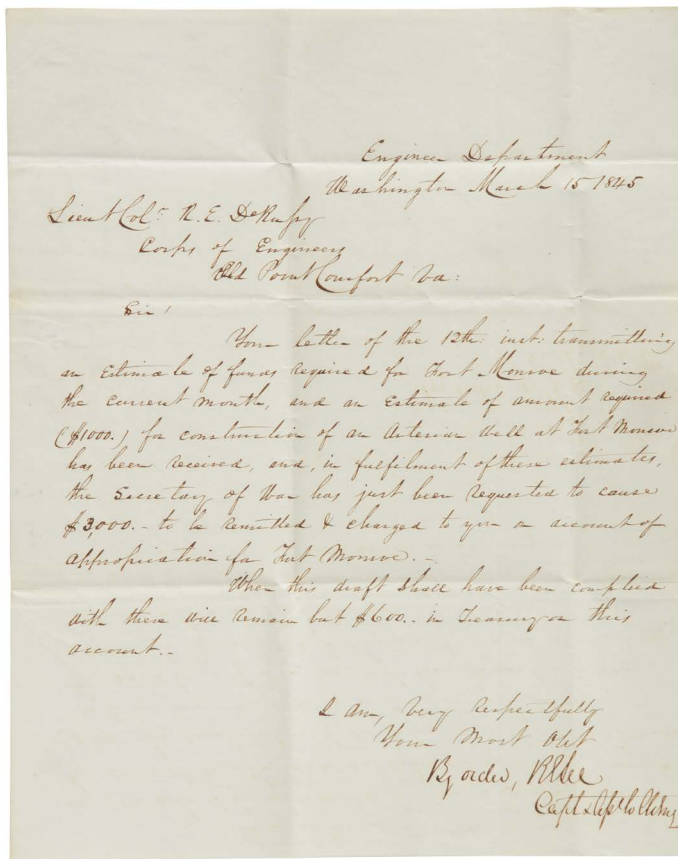 Engineer Department
Washington March 15 1845
Lieut Col: R. E. DeRussy
Corps of Engineers
Old Point Comfort Va:
Sir!
Your letter of the 12th: inst: transmitting
an Estimate of funds required for Fort Monroe during
the current month, and an Estimate of amount required
($1000.) for construction of an Artesian Well at Fort Monroe
has been received, and, in fulfilment of these estimates,
the Secretary of War has just been requested to cause
$3,000.- to be remitted & charged to you on account of
appropriation for Fort Monroe. -
When this draft shall have been complied
with there will remain but $600.- in Treasury on this
account. -
I am, very respectfully
Your Most Obt
By order, RELee
Capt &